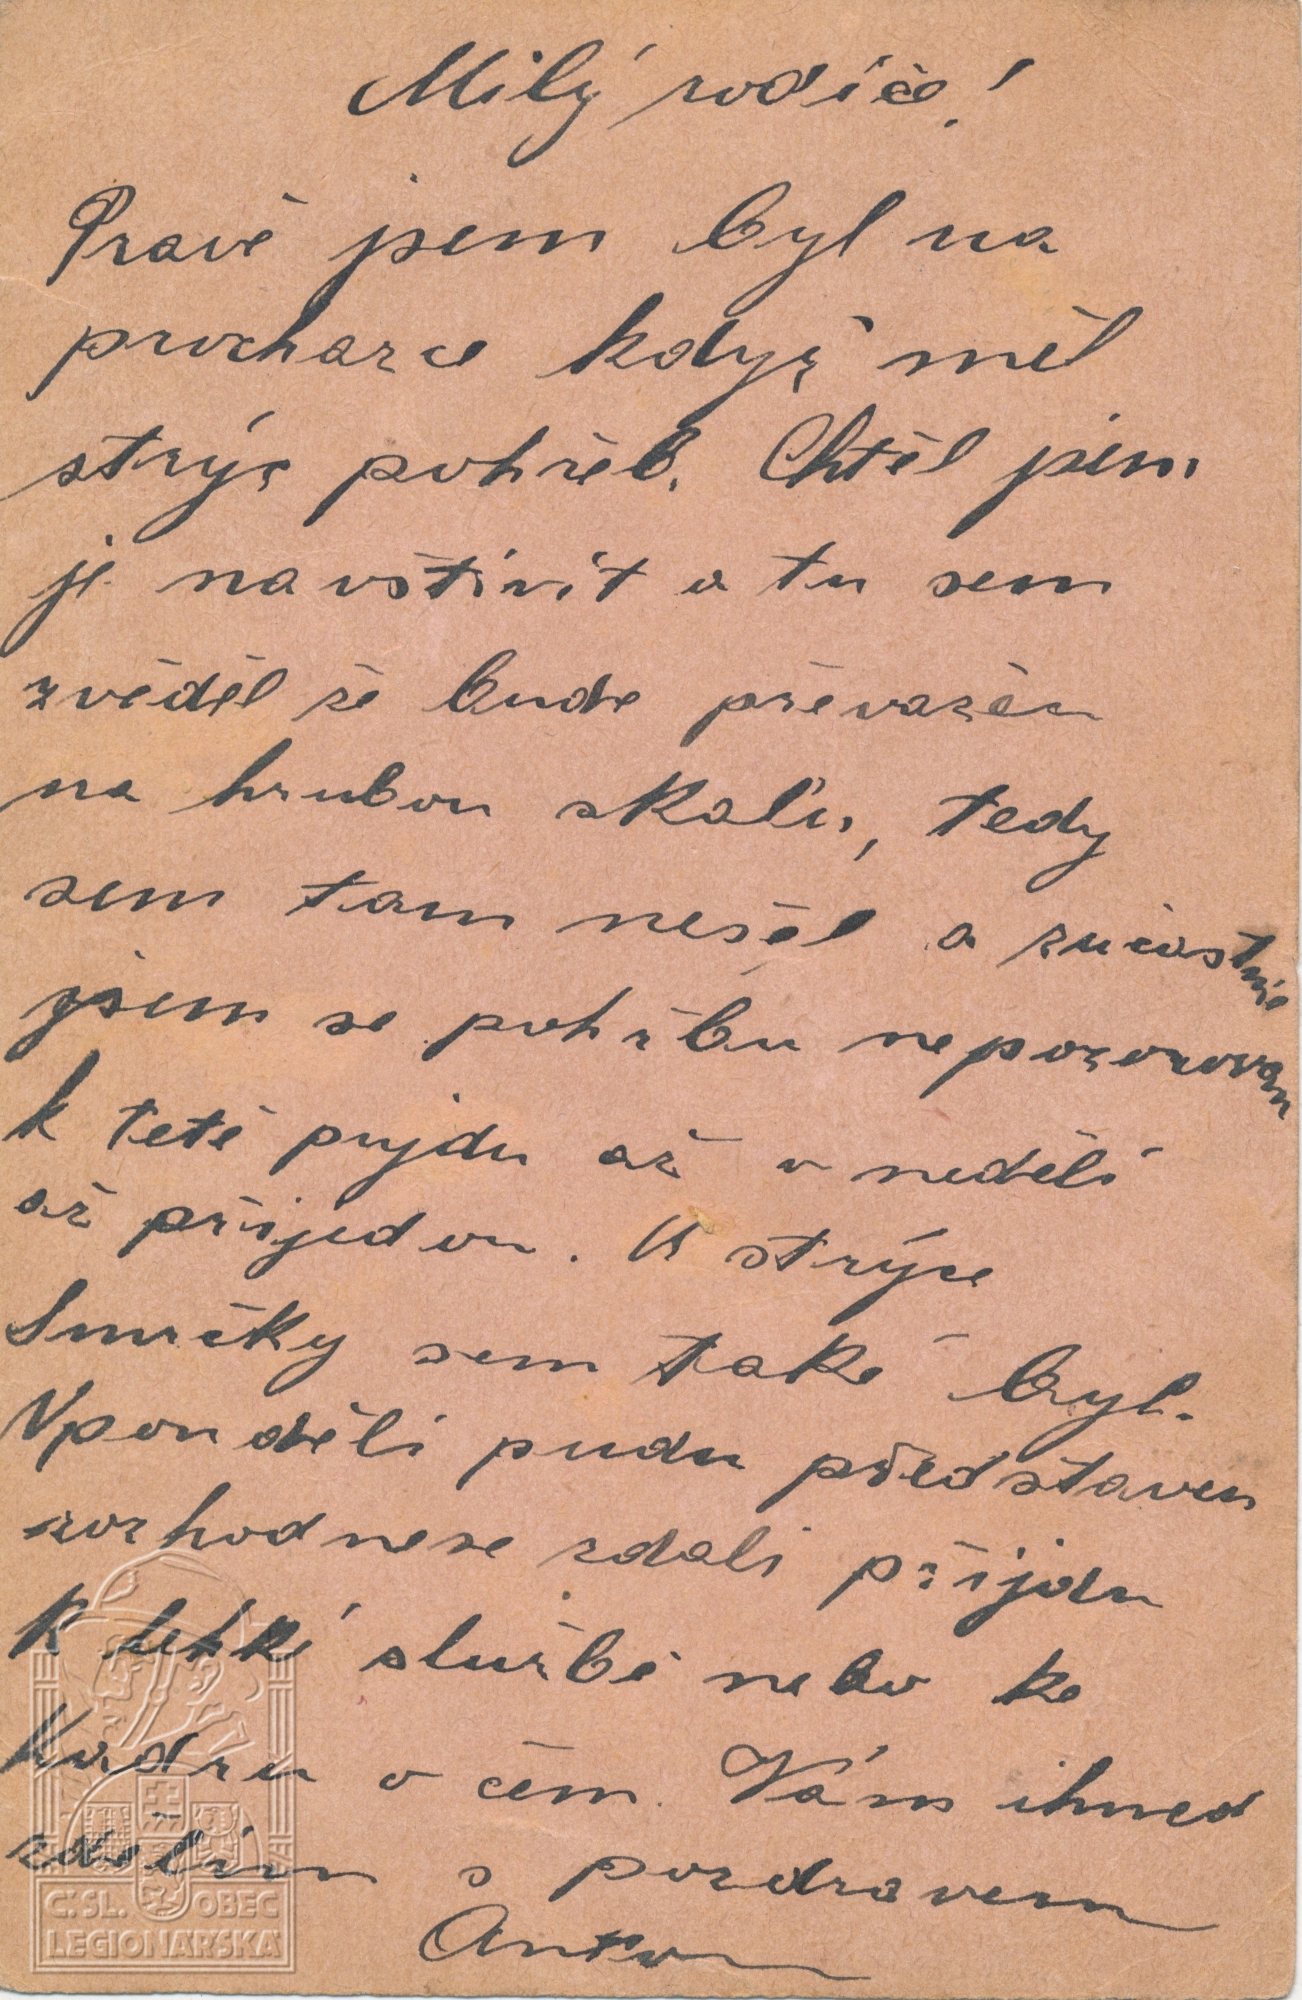 Milý rodiče!
Pravě jsem byl na
procharce když měl
strýc pohřeb. Chtěl jsem
je navštívit a tu sem
zvěděl že bude převažen
na hrubou skalu, tedy
sem tam nešel a zučastnie
jsem se pohřbu nepozorovan
k tetě pujdu až v neděli
až přijedou. U strýce
Smrčky sem také byl.
Vponděli pudu představen
rozhodnese zdali přijdu
k lehké službě nebo ke
kadru o čem Vám ihned
zdělim s pozdravem
Anton
Č.SL. OBEC
LEGIONÁŘSKÁ